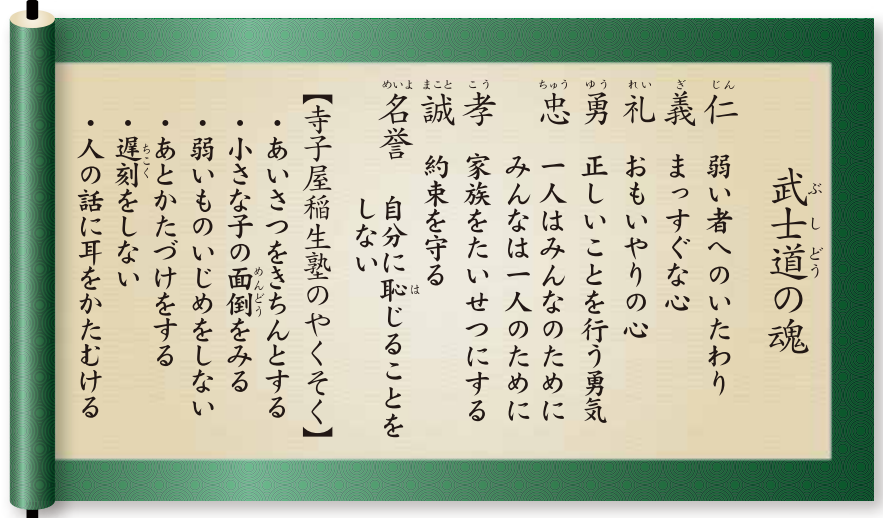 武士道の魂
仁 弱い者へのいたわり
義 まっすぐな心
礼 おもいやりの心
勇 正しいことを行う勇気
忠 一人はみんなのために
みんなは一人のために
孝 家族をたいせつにする
誠 約束を守る
名誉 自分に恥じることを
しない
【寺子屋稲生塾のやくそく】
・あいさつをきちんとする
・小さな子の面倒をみる
・弱いものいじめをしない
・あとかたづけをする
・遅刻をしない
・人の話に耳をかたむける